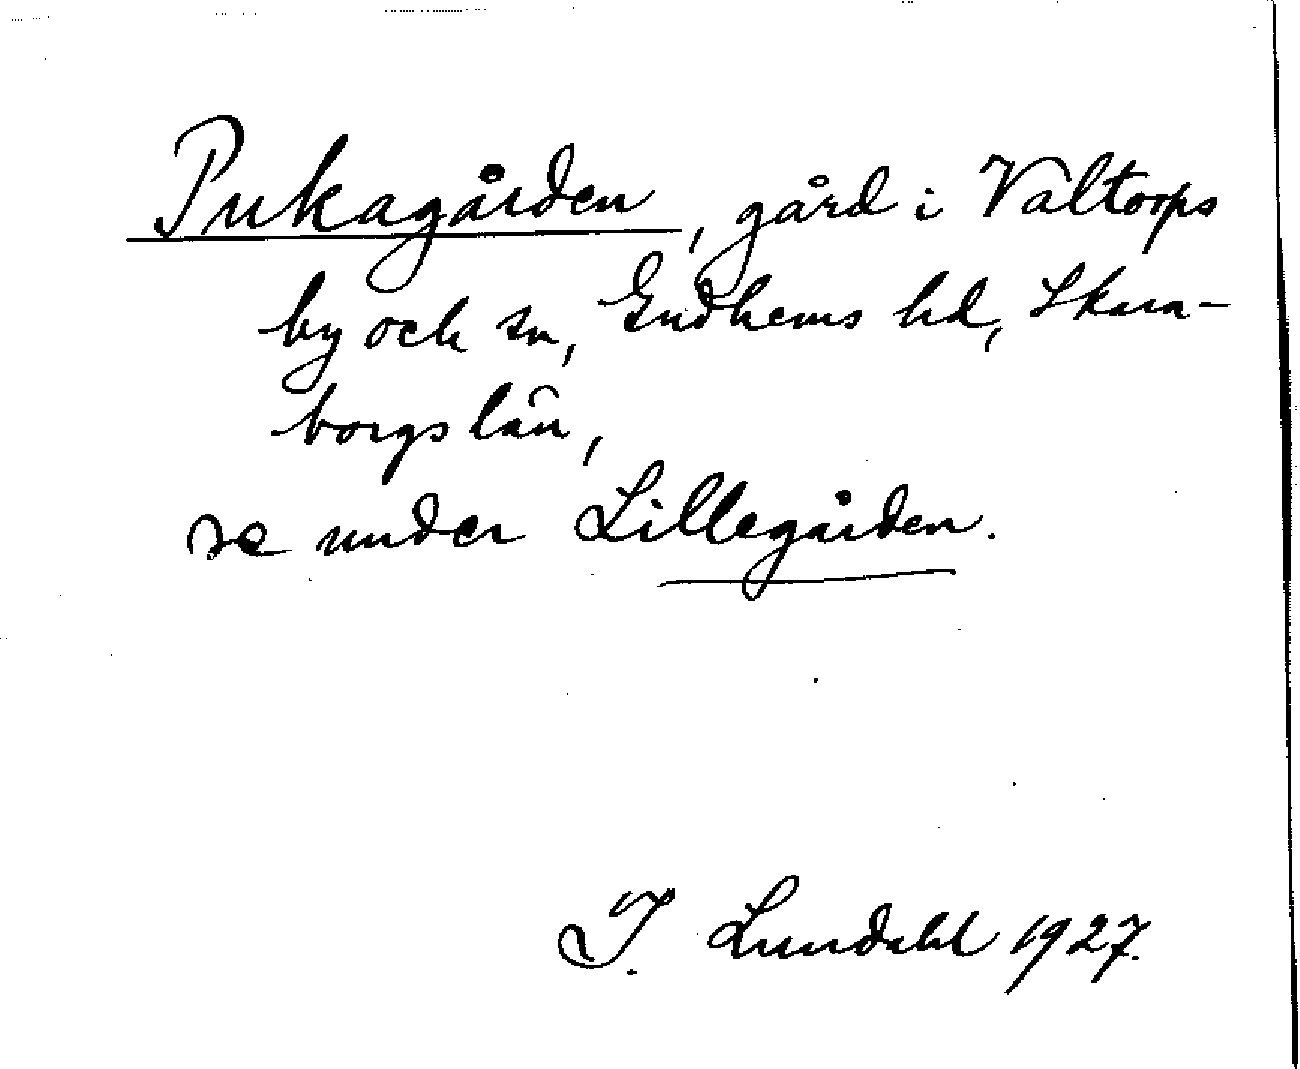 Pukagården, gård i Valtorps
by och sn, Gudhems hd, Skara-
borgs län,
se under Lillegården.
I. Lundahl 1927.